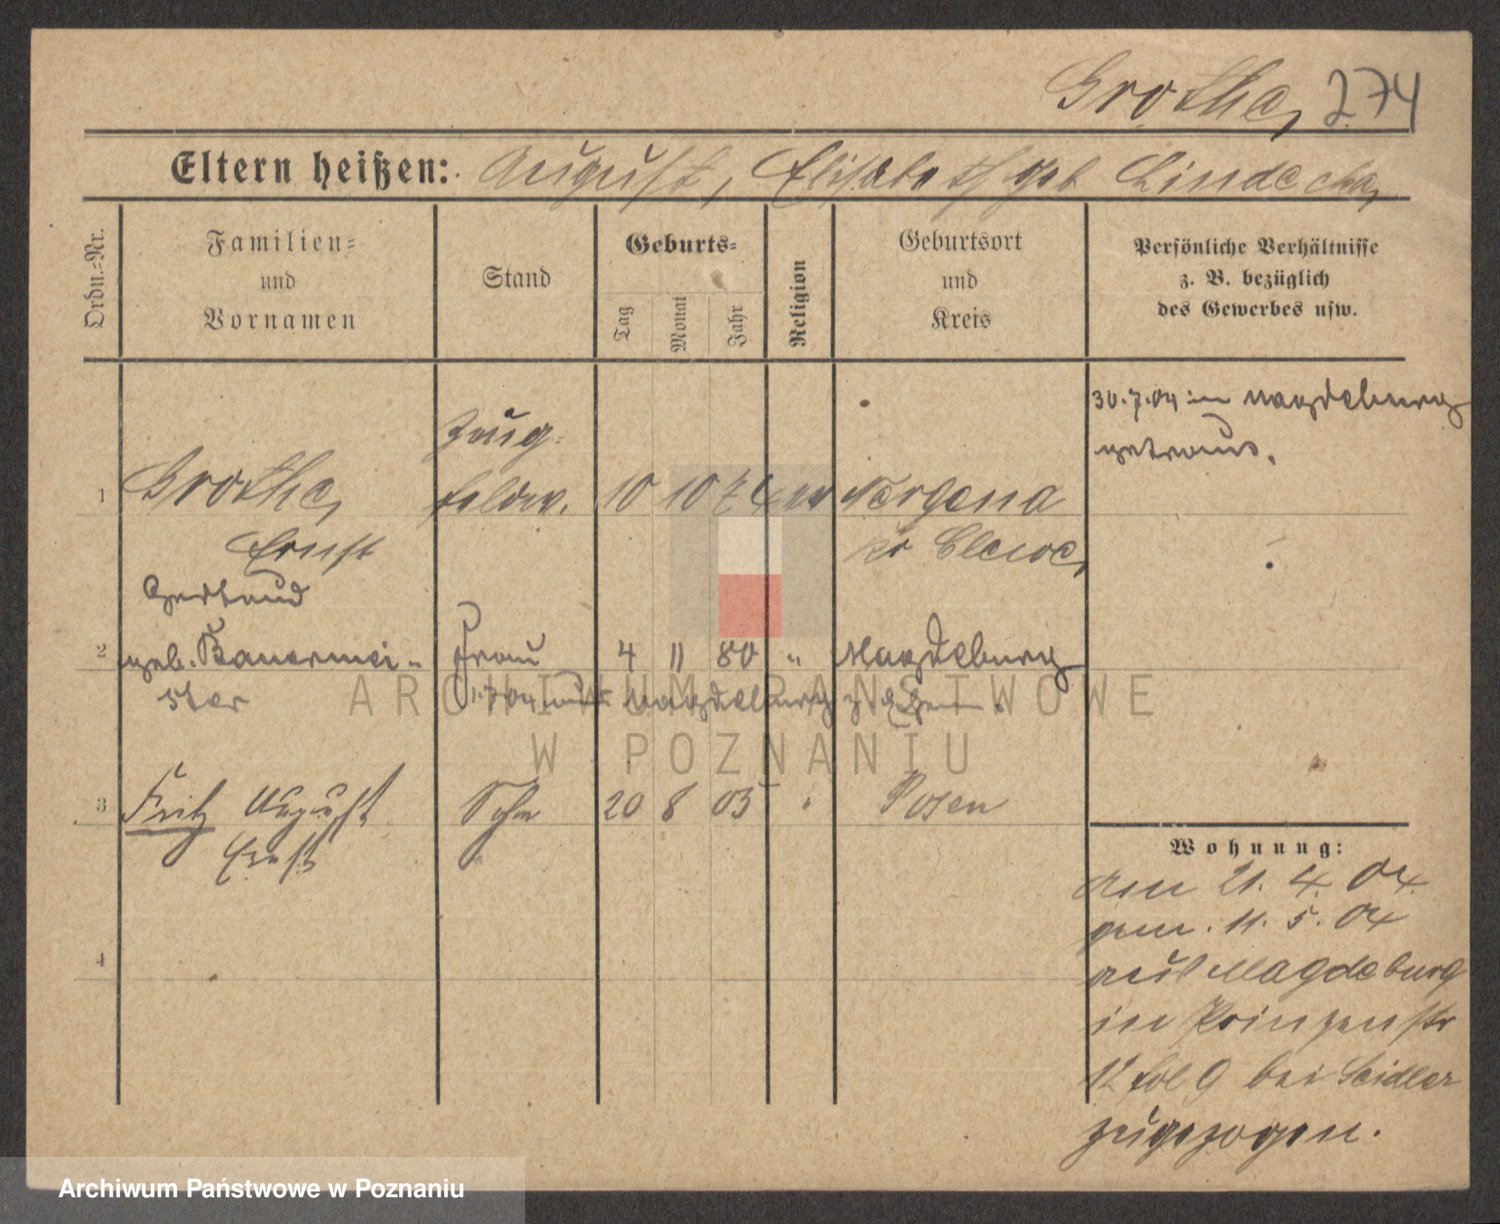 Grothe, 274
Eltern heißen: August, Elisabeth geb
Ordn.-Nr.
Familien-
und
Vornamen
Stand
Geburts-
Tag
Monat
Jahr
Religion
Geburtsort
und
Kreis
Persönliche Verhältnisse
z. B. bezüglich
des Gewerbes usw.
30.7.04 in Magdeburg
getraut.
Zeug-
1 Grothe, feldw. 10 10 74 ev
Ernst
Gertraud
2 geb. Bauermei- Frau 4 11 80 " Magdeburg
ster
3 Fritz August Sohn 20 8 05 " Posen
Ernst
4
Wohnung:
am 21. 4. 04
gem. 11. 5. 04
aus Magdeburg
in Prinzenstr
12 bei Seidler
zugezogen.
ARCHIWUM PAŃSTWOWE
W POZNANIU
Archiwum Państwowe w Poznaniu